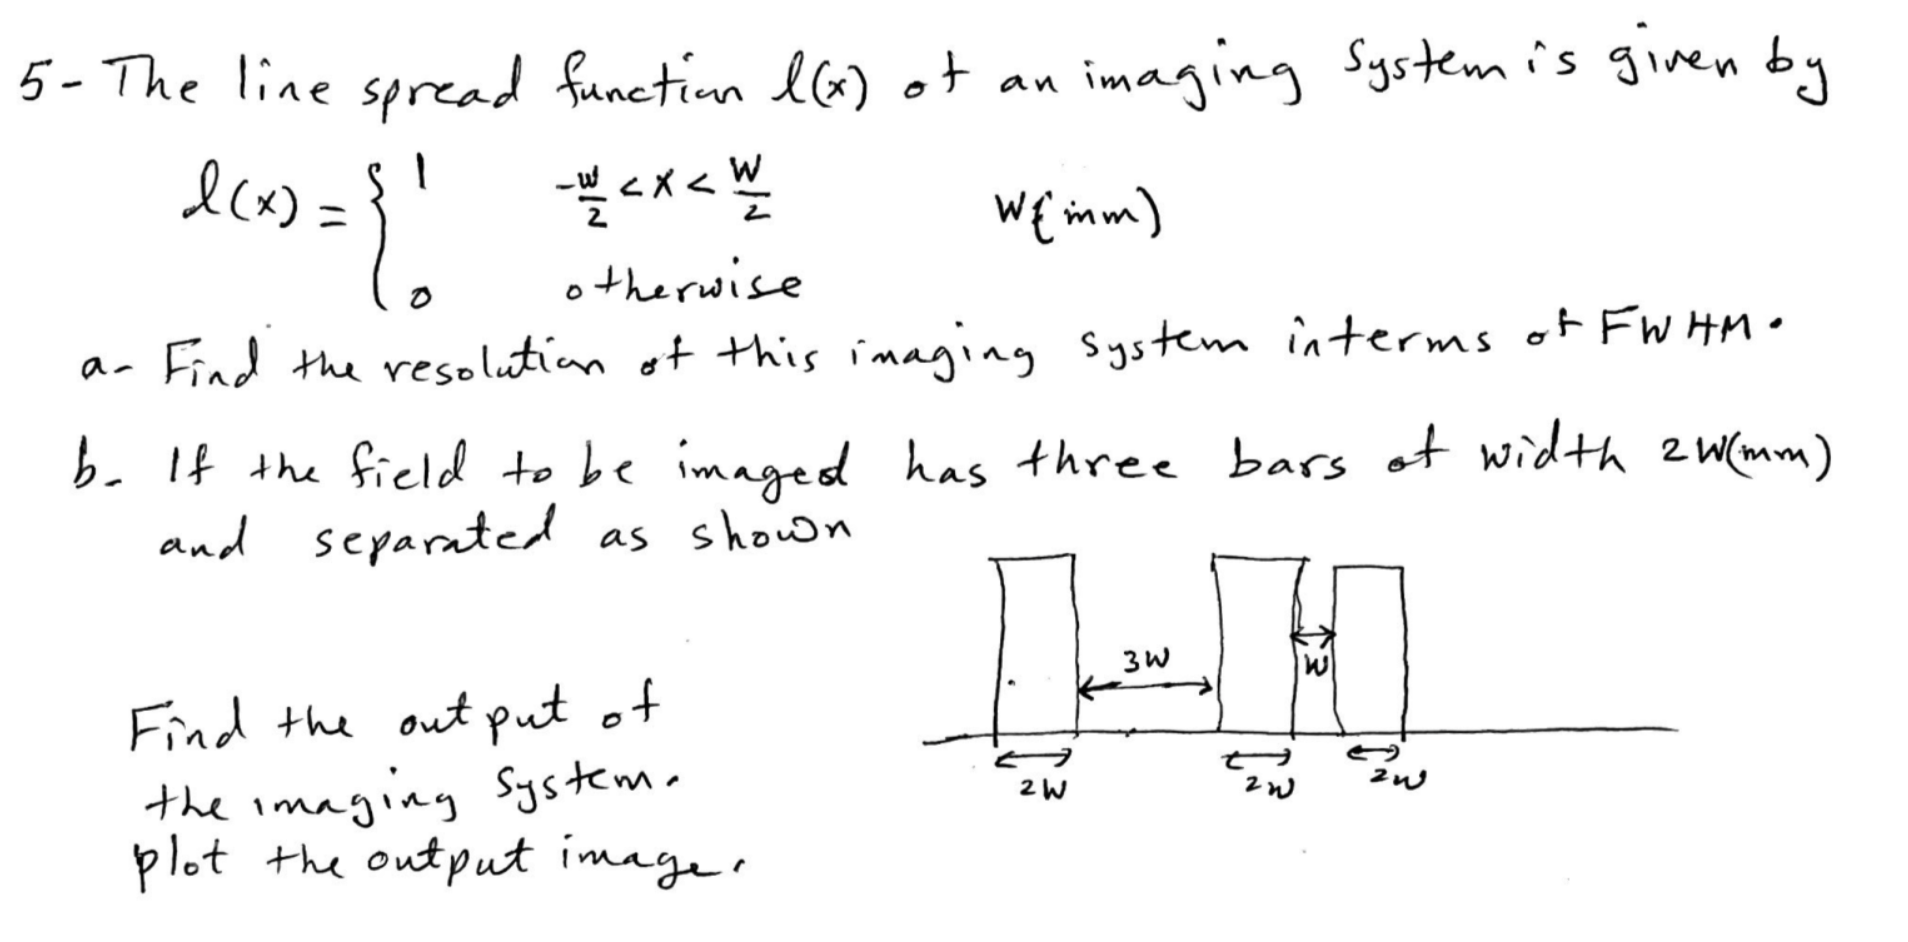 5- The line spread function l(x) of an imaging system is given by
l(x) = { 1 -w/2 < x < w/2 W(mm)
0 otherwise
a- Find the resolution of this imaging system interms of FWHM.
b- If the field to be imaged has three bars of width 2W(mm)
and separated as shown
3W
W
Find the output of
the imaging system.
2W 2W 2W
plot the output image.